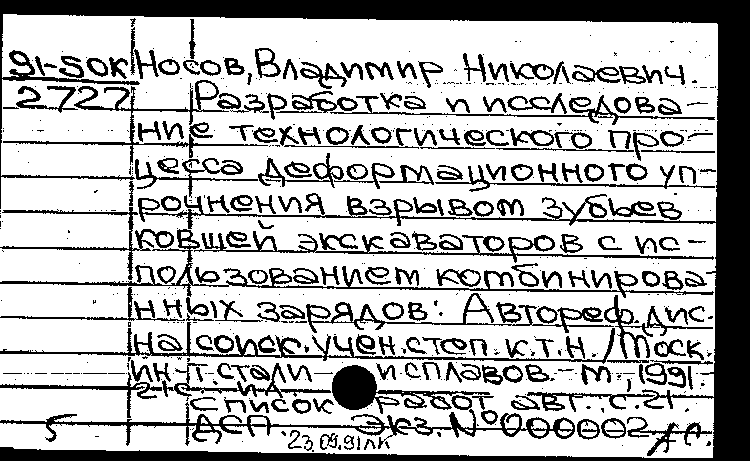 91-SOK Носов, Владимир Николаевич.
2727 Разработка и исследова-
ние технологического про-
цесса деформационного уп-
рочнения взрывом зубьев
ковшей экскаваторов с ис-
пользованием комбинирова-
нных зарядов: Автореф. дис.
на соиск. учен. степ. к.т.н. / Моск.
ин-т. стали и сплавов. - М., 1991. -
21с.
Список работ авт.: с. 21.
5 ДСП. Экз. № 000002
23.09.91 ЛК